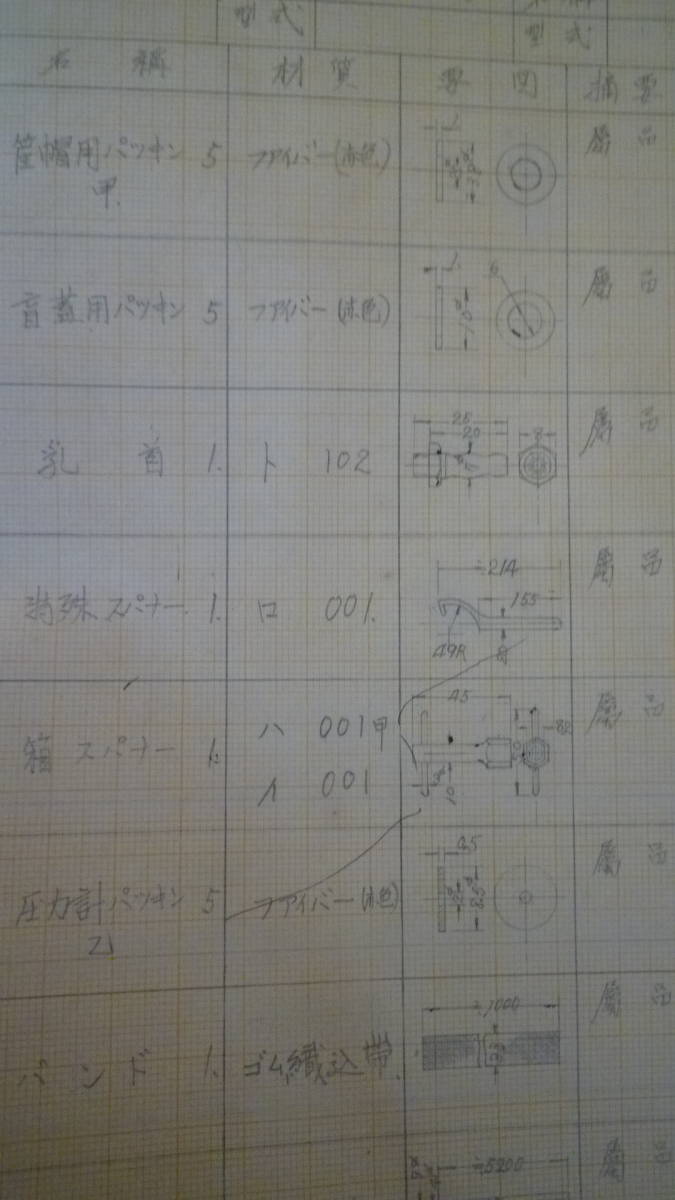 型式
型式
名稱 材質 要図 摘要
筐帽用パツキン 5 ファイバー(赤色) 属品
甲.
1
盲蓋用パツキン 5 ファイバー(赤色) 属品
1 6
乳首 1. ト 102 属品
26
20 8
特殊スパナー 1. ロ 001. 属品
≒214
155
49R
箱スパナー 1. ハ 001甲 属品
イ 001
45
圧力計パツキン 5 ファイバー(赤色) 属品
乙
バンド 1. ゴム織込帯. 属品
≒1000
≒5200 属品